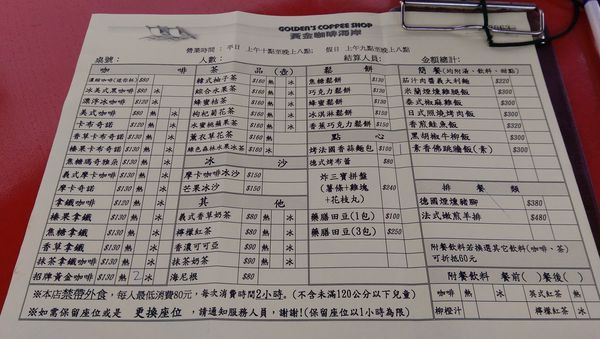 GOLDEN'S COFFEE SHOP
黃金咖啡海岸
營業時間：平日 上午十點至晚上八點; 假日 上午九點至晚上八點
桌號： 人數： 結算人員： 金額總計：
咖 啡
$80
冰美式黑咖啡 $80 冰
漂浮冰咖啡 $120 冰
美式咖啡 $80 熱 冰
卡布奇諾 $120 熱 冰
香草卡布奇諾 $130 熱 冰
榛果卡布奇諾 $130 熱 冰
焦糖瑪奇雅朵 $130 熱 冰
義式摩卡咖啡 $130 熱 冰
摩卡奇諾 $130 熱 冰
拿鐵咖啡 $120 熱 冰
榛果拿鐵 $130 熱 冰
焦糖拿鐵 $130 熱 冰
香草拿鐵 $130 熱 冰
抹茶拿鐵咖啡 $130 熱 冰
招牌黃金咖啡 $130 熱 2 冰
茶 品(壺)
韓式柚子茶 $160 熱 冰
綜合水果茶 $160 熱 冰
蜂蜜桔茶 $160 熱 冰
枸杞菊花茶 $160 熱 冰
水蜜桃蘋果茶 $160 熱 冰
薰衣草花茶 $160 熱 冰
綠色森林水果冰茶 $160 冰
冰 沙
摩卡咖啡冰沙 $150
芒果冰沙 $150
其 他
義式香草奶茶 $90 熱 冰
檸檬紅茶 $80 熱 冰
香濃可可亞 $90 熱 冰
抹茶奶茶 $90 熱 冰
海尼根 $80
鬆 餅
焦糖鬆餅 $130
巧克力鬆餅 $130
蜂蜜鬆餅 $130
冰淇淋鬆餅 $150
香蕉巧克力鬆餅 $150
點 心
烤法國香蒜麵包 $100
德式烤布蕾 $80
炸三寶拼盤
(薯條+雞塊
+花枝丸) $240
藥膳田豆(1包) $100
藥膳田豆(3包) $250
簡 餐 (均附湯、飲料、甜點)
茄汁肉醬義大利麵 $220
米蘭煙燻雞腿飯 $300
泰式椒麻雞飯 $300
日式照燒烤肉飯 $300
香煎鮭魚飯 $320
黑胡椒牛柳飯 $300
素香佛跳牆飯(素) $300
排 餐 類
德國煙燻豬腳 $380
法式嫩煎羊排 $480
附餐飲料若換選其它飲料(咖啡、茶)
可折抵60元
附餐飲料 餐前( )餐後( )
咖啡 熱 冰 英式紅茶 熱
柳橙汁 冰 檸檬紅茶 冰
※本店禁帶外食，每人最低消費80元，每次消費時間2小時。(不含未滿120公分以下兒童)
※如需保留座位或是 更換座位 ，請通知服務人員，謝謝!(保留座位以1小時為限)